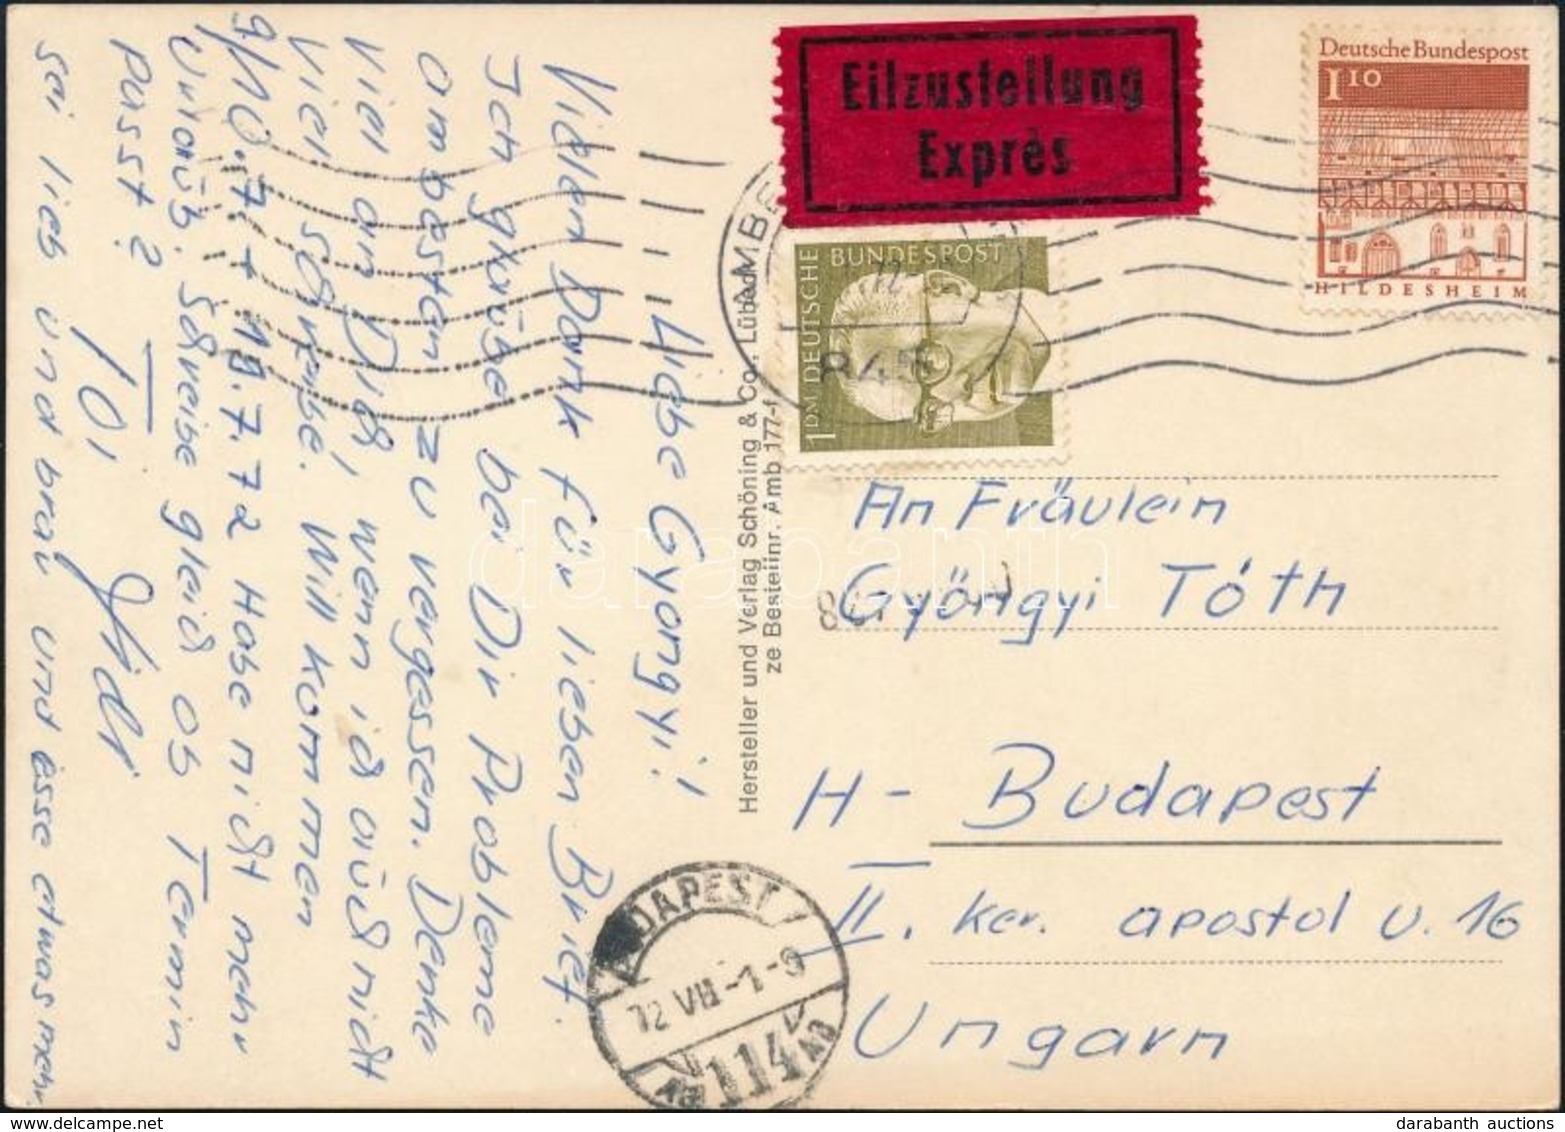 Liebe Gyongyi!
Vielen Dank für lieben Brief.
Ich glaube bei Dir Probleme
am besten zu vergessen. Denke
viel an Dich, wenn ich auch nicht
viel schreibe. Will kommen
9/10.7 + 19.7.72 Habe nicht mehr
Urlaub. Schreibe gleich ob Termin
passt?
Toi,
sei lieb und brav und esse etwas mehr.
Hersteller und Verlag Schöning & Co., Lübeck
ze Bestellnr. Amb 177-f
Eilzustellung
Exprès
Deutsche Bundespost
1 10
HILDESHEIM
DEUTSCHE BUNDESPOST
1 DM
845
An Fräulein
Györgyi Tóth
H- Budapest
II. ker. apostol u. 16
Ungarn
BUDAPEST
72 VII -1-9
114
darabanth
darabanth auctions